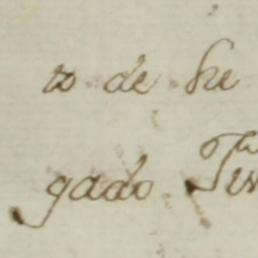 to de he
gado